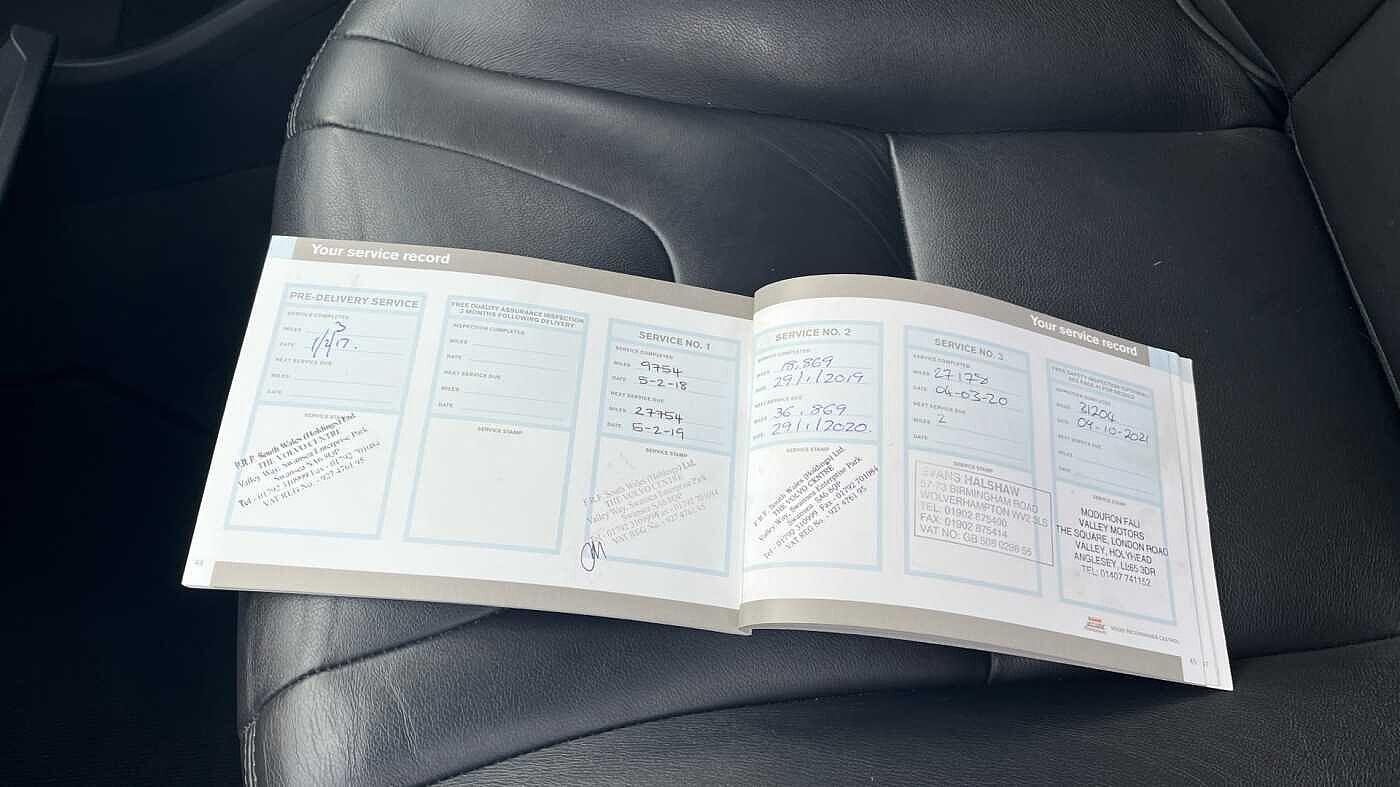 Your service record
PRE-DELIVERY SERVICE
SERVICE COMPLETED
MILES 3
DATE 1/2/17.
NEXT SERVICE DUE
MILES
DATE
SERVICE STAMP
F.R.F. South Wales (Holdings) Ltd.
THE VOLVO CENTRE
Valley Way, Swansea Enterprise Park
Swansea SA6 8QP
Tel - 01792 310999 Fax - 01792 701084
VAT REG No. - 927 4761 95
FREE QUALITY ASSURANCE INSPECTION
3 MONTHS FOLLOWING DELIVERY
INSPECTION COMPLETED
MILES
DATE
NEXT SERVICE DUE
MILES
DATE
SERVICE STAMP
SERVICE NO. 1
SERVICE COMPLETED
MILES 9754
DATE 5-2-18
NEXT SERVICE DUE
MILES 27754
DATE 5-2-19
SERVICE STAMP
F.R.F. South Wales (Holdings) Ltd.
THE VOLVO CENTRE
Valley Way, Swansea Enterprise Park
Swansea SA6 8QP
01792 310999 Fax - 01792 701084
VAT REG No. - 927 4761 95
44
Your service record
SERVICE NO. 2
SERVICE COMPLETED
MILES 18.869
DATE 29/1/2019
NEXT SERVICE DUE
MILES 36.869
DATE 29/1/2020.
SERVICE STAMP
F.R.F. South Wales (Holdings) Ltd.
THE VOLVO CENTRE
Valley Way, Swansea Enterprise Park
Swansea SA6 8QP
Tel - 01792 310999 Fax - 01792 701084
VAT REG No. - 927 4761 95
SERVICE NO. 3
SERVICE COMPLETED
MILES 27178
DATE 04-03-20
NEXT SERVICE DUE
MILES 2
DATE
SERVICE STAMP
EVANS HALSHAW
57-73 BIRMINGHAM ROAD
WOLVERHAMPTON WV2 3LS
TEL: 01902 875400
FAX: 01902 875414
VAT NO: GB 508 0296 55
FREE SAFETY INSPECTION (OPTIONAL)
INSPECTION COMPLETED
MILES 31204
DATE 09-10-2021
NEXT SERVICE DUE
MILES
DATE
SERVICE STAMP
MODURON FALI
VALLEY MOTORS
THE SQUARE, LONDON ROAD
VALLEY, HOLYHEAD
ANGLESEY, LL65 3DR
TEL: 01407 741152
VOLVO RECOMMENDS CASTROL
45